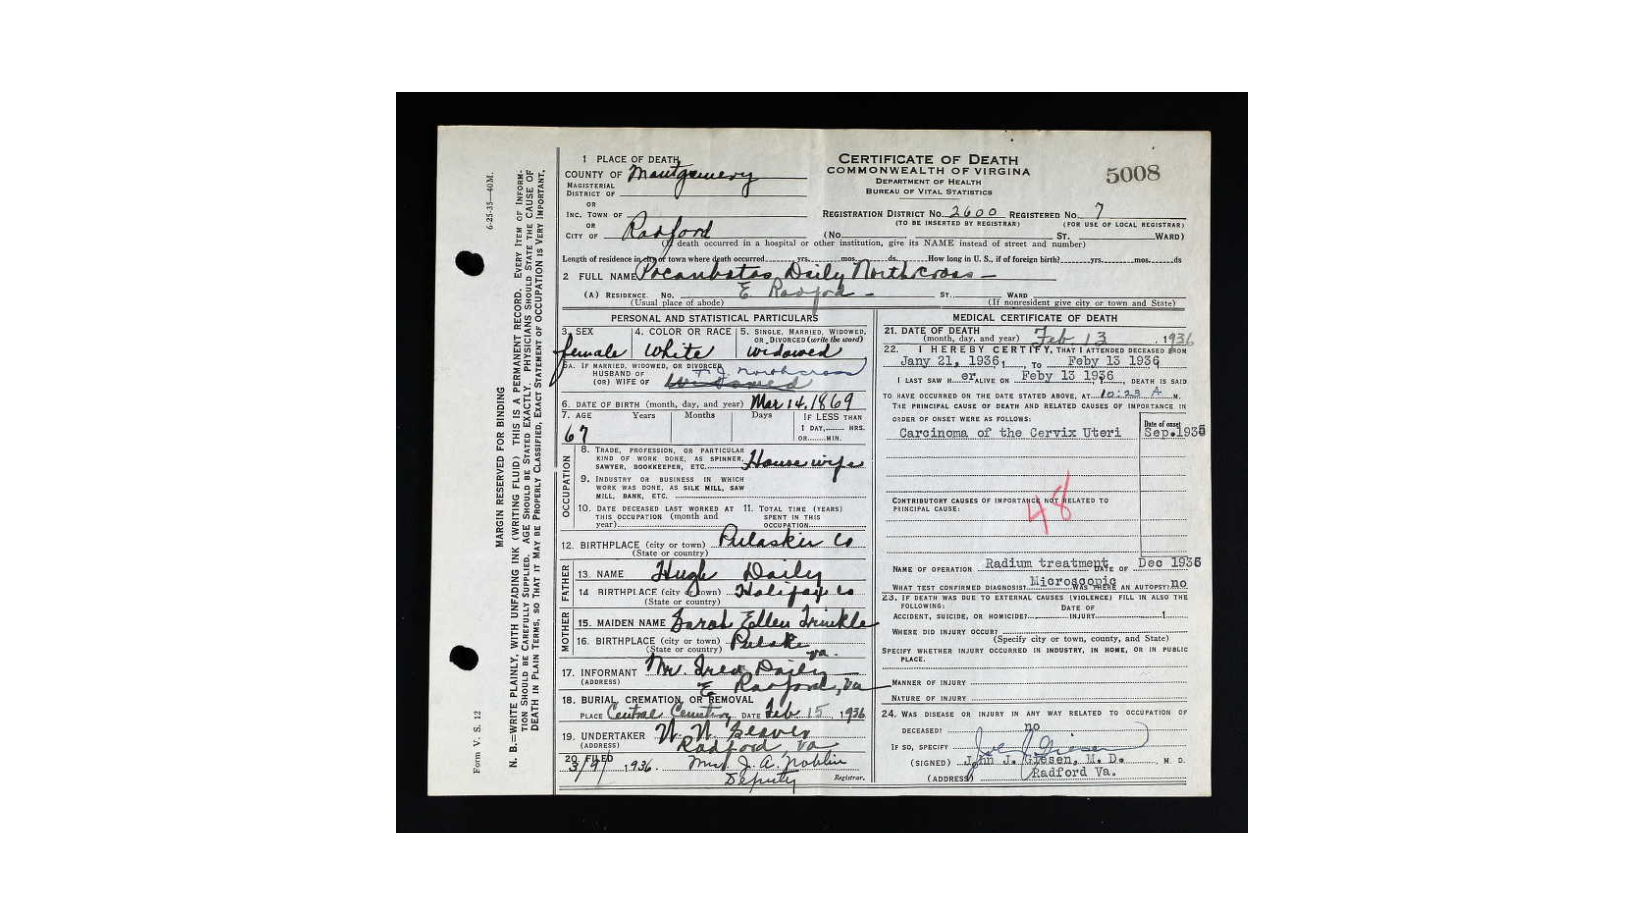 6-25-35—40M.
MARGIN RESERVED FOR BINDING
N. B.—WRITE PLAINLY, WITH UNFADING INK (WRITING FLUID) THIS IS A PERMANENT RECORD. EVERY ITEM OF INFORM-
TION SHOULD BE CAREFULLY SUPPLIED. AGE SHOULD BE STATED EXACTLY. PHYSICIANS SHOULD STATE THE CAUSE OF
DEATH IN PLAIN TERMS, SO THAT IT MAY BE PROPERLY CLASSIFIED, EXACT STATEMENT OF OCCUPATION IS VERY IMPORTANT,
Form V. S. 12
CERTIFICATE OF DEATH
COMMONWEALTH OF VIRGINIA
DEPARTMENT OF HEALTH
BUREAU OF VITAL STATISTICS
5008
1 PLACE OF DEATH
COUNTY OF Montgomery
MAGISTERIAL
DISTRICT OF
OR
INC. TOWN OF
OR
CITY OF Radford
REGISTRATION DISTRICT NO. 2600 REGISTERED NO. 7
(TO BE INSERTED BY REGISTRAR) (FOR USE OF LOCAL REGISTRAR)
(No. ST. WARD)
(If death occurred in a hospital or other institution, give its NAME instead of street and number)
Length of residence in city or town where death occurred yrs. mos. ds. How long in U. S., if of foreign birth? yrs. mos. ds
2 FULL NAME Pocanhatas Daily Northcross
(A) RESIDENCE. NO. E Radford ST. WARD
(Usual place of abode) (If nonresident give city or town and State)
PERSONAL AND STATISTICAL PARTICULARS
3. SEX female
4. COLOR OR RACE White
5. SINGLE, MARRIED, WIDOWED, OR DIVORCED (write the word) widowed
5A. IF MARRIED, WIDOWED, OR DIVORCED
HUSBAND OF
(OR) WIFE OF J. Northcross
Widowed
6. DATE OF BIRTH (month, day, and year) Mar 14, 1869
7. AGE Years Months Days IF LESS THAN
1 DAY, HRS.
OR MIN.
67
OCCUPATION
8. TRADE, PROFESSION, OR PARTICULAR
KIND OF WORK DONE, AS SPINNER,
SAWYER, BOOKKEEPER, ETC. House wife
9. INDUSTRY OR BUSINESS IN WHICH
WORK WAS DONE, AS SILK MILL, SAW
MILL, BANK, ETC.
10. DATE DECEASED LAST WORKED AT
THIS OCCUPATION (month and
year)
11. TOTAL TIME (YEARS)
SPENT IN THIS
OCCUPATION
12. BIRTHPLACE (city or town) Pulaski Co
(State or country)
FATHER
13. NAME Hugh Daily
14 BIRTHPLACE (city or town) Halifax Co
(State or country)
MOTHER
15. MAIDEN NAME Sarah Ellen Trinkle
16. BIRTHPLACE (city or town) Pulaski
(State or country) Va.
17. INFORMANT Mr. Fred Daily
(ADDRESS) E Radford, Va
18. BURIAL CREMATION, OR REMOVAL
PLACE Central Cemetery DATE Feb 15, 1936
19. UNDERTAKER
(ADDRESS) Radford, Va
20. FILED 3/9/, 1936. Mrs. J. A. Noblin
Deputy Registrar.
MEDICAL CERTIFICATE OF DEATH
21. DATE OF DEATH
(month, day, and year) Feb 13, 1936
22. I HEREBY CERTIFY, THAT I ATTENDED DECEASED FROM
Jany 21, 1936, TO Feby 13 1936
I LAST SAW H er ALIVE ON Feby 13 1936, DEATH IS SAID
TO HAVE OCCURRED ON THE DATE STATED ABOVE, AT 10:23 A M.
THE PRINCIPAL CAUSE OF DEATH AND RELATED CAUSES OF IMPORTANCE IN
ORDER OF ONSET WERE AS FOLLOWS:
Date of onset
Carcinoma of the Cervix Uteri Sep.1935
CONTRIBUTORY CAUSES OF IMPORTANCE NOT RELATED TO
PRINCIPAL CAUSE:
48
NAME OF OPERATION Radium treatment DATE OF Dec 1935
WHAT TEST CONFIRMED DIAGNOSIS? Microscopic WAS THERE AN AUTOPSY? no
23. IF DEATH WAS DUE TO EXTERNAL CAUSES (VIOLENCE) FILL IN ALSO THE
FOLLOWING:
ACCIDENT, SUICIDE, OR HOMICIDE? DATE OF INJURY 1
WHERE DID INJURY OCCUR?
(Specify city or town, county, and State)
SPECIFY WHETHER INJURY OCCURRED IN INDUSTRY, IN HOME, OR IN PUBLIC
PLACE.
MANNER OF INJURY
NATURE OF INJURY
24. WAS DISEASE OR INJURY IN ANY WAY RELATED TO OCCUPATION OF
DECEASED? no
IF SO, SPECIFY
(SIGNED) John J. Giesen, M. D. M. D.
(ADDRESS) Radford Va.